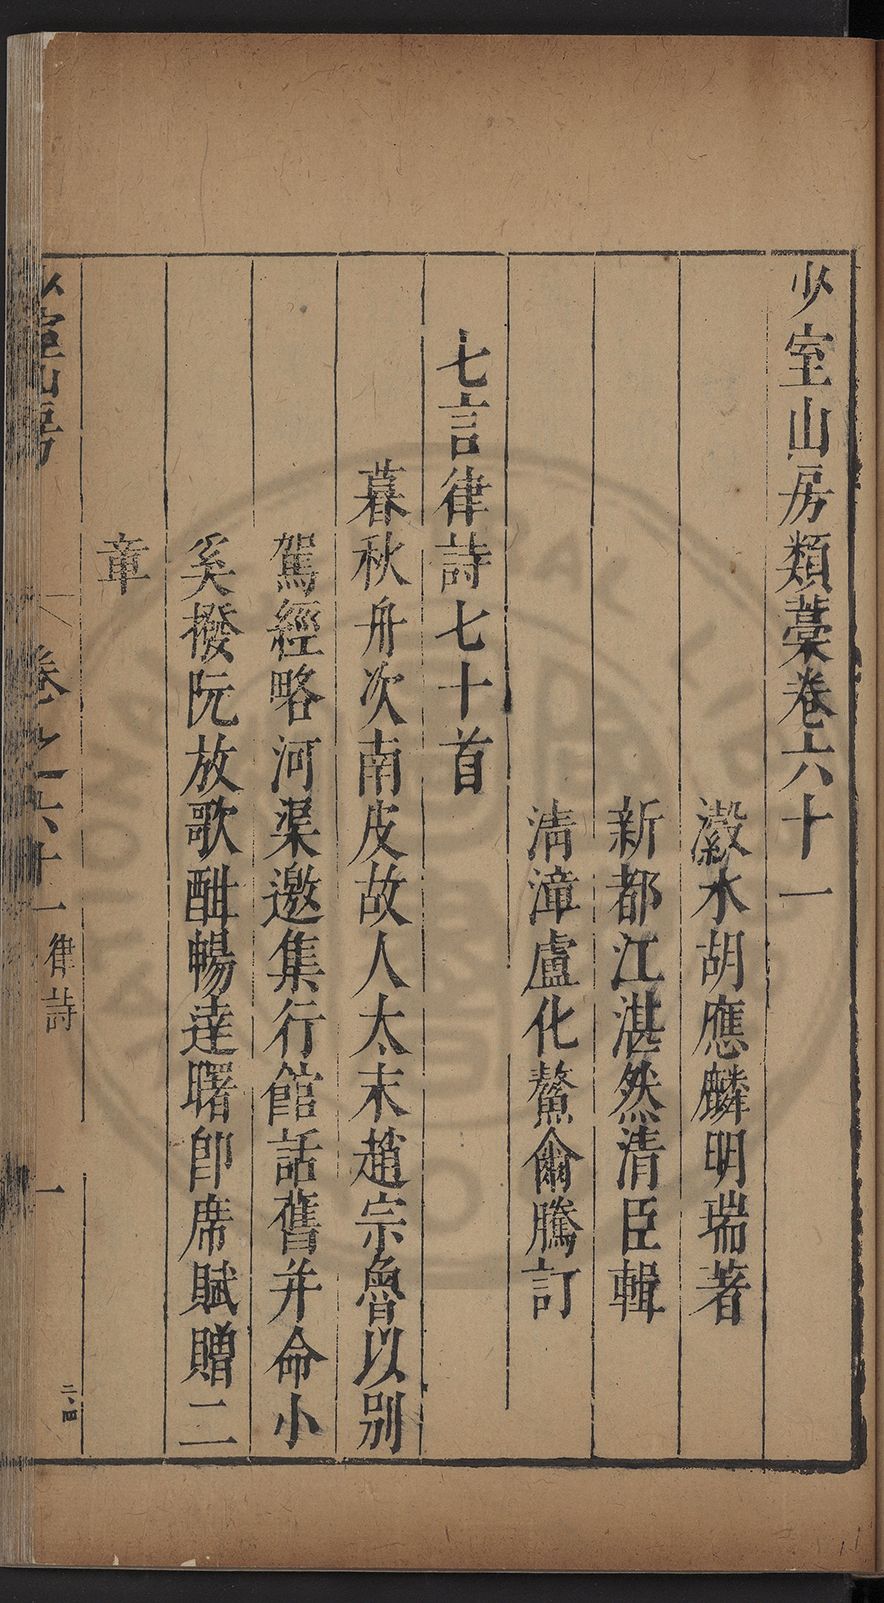 少室山房類藁卷六十一
瀫水胡應麟明瑞著
新都江湛然清臣輯
清漳盧化鰲爾騰訂
七言律詩七十首
暮秋舟次南皮故人太末趙宗魯以別
駕經略河渠邀集行館話舊并命小
奚撥阮放歌酣暢達曙卽席賦贈二
章
少室山房
卷之六十一
律詩
一
二、四